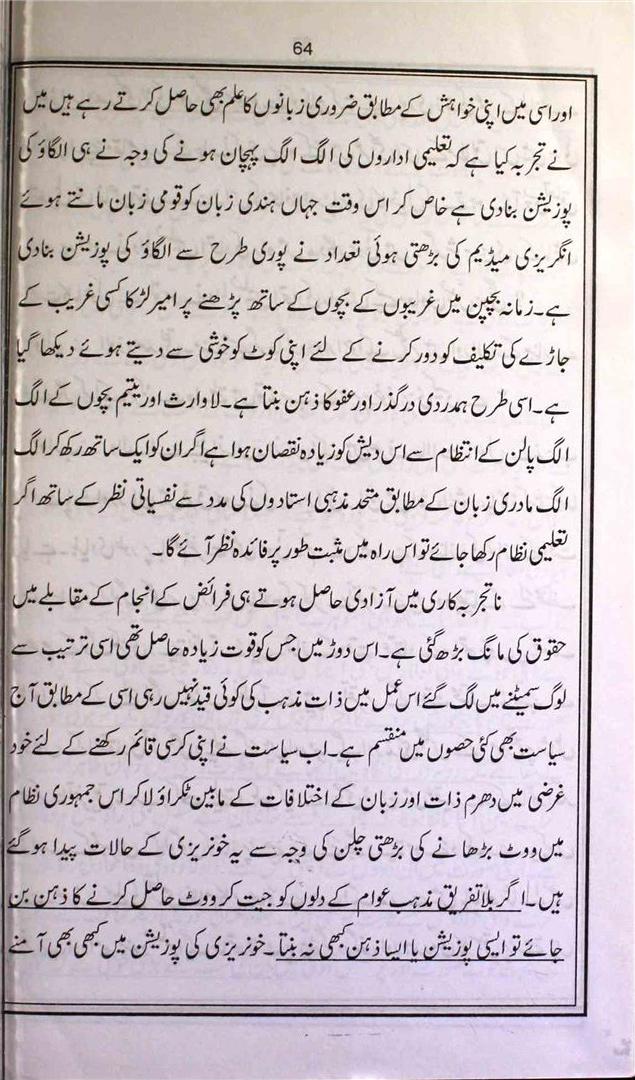 64
اور اسی میں اپنی خواہش کے مطابق ضروری زبانوں کا علم بھی حاصل کرتے رہے ہیں میں
نے تجربہ کیا ہے کہ تعلیمی اداروں کی الگ الگ پہچان ہونے کی وجہ نے ہی الگاؤ کی
پوزیشن بنادی ہے خاص کر اس وقت جہاں ہندی زبان کو قومی زبان مانتے ہوئے
انگریزی میڈیم کی بڑھتی ہوئی تعداد نے پوری طرح سے الگاؤ کی پوزیشن بنادی
ہے۔ زمانہ بچپن میں غریبوں کے بچوں کے ساتھ پڑھنے پر امیر لڑکا کسی غریب کے
جاڑے کی تکلیف کو دور کرنے کے لئے اپنی کوٹ کو خوشی سے دیتے ہوئے دیکھا گیا
ہے۔ اسی طرح ہمدردی درگذر اور عفو کا ذہن بنتا ہے۔ لاوارث اور یتیم بچوں کے الگ
الگ پالن کے انتظام سے اس دیش کو زیادہ نقصان ہوا ہے اگر ان کو ایک ساتھ رکھ کر الگ
الگ مادری زبان کے مطابق متحد مذہبی استادوں کی مدد سے نفسیاتی نظر کے ساتھ اگر
تعلیمی نظام رکھا جائے تو اس راہ میں مثبت طور پر فائدہ نظر آئے گا۔
ناتجربہ کاری میں آزادی حاصل ہوتے ہی فرائض کے انجام کے مقابلے میں
حقوق کی مانگ بڑھ گئی ہے۔ اس دوڑ میں جس کو قوت زیادہ حاصل تھی اسی ترتیب سے
لوگ سمیٹنے میں لگ گئے اس عمل میں ذات مذہب کی کوئی قید نہیں رہی اسی کے مطابق آج
سیاست بھی کئی حصوں میں منقسم ہے۔ اب سیاست نے اپنی کرسی قائم رکھنے کے لئے خود
غرضی میں دھرم ذات اور زبان کے اختلافات کے مابین ٹکراؤ لا کر اس جمہوری نظام
میں ووٹ بڑھانے کی بڑھتی چلن کی وجہ سے یہ خونریزی کے حالات پیدا ہوگئے
ہیں۔ اگر بلا تفریق مذہب عوام کے دلوں کو جیت کر ووٹ حاصل کرنے کا ذہن بن
جائے تو ایسی پوزیشن یا ایسا ذہن کبھی نہ بنتا۔ خونریزی کی پوزیشن میں کبھی بھی آمنے